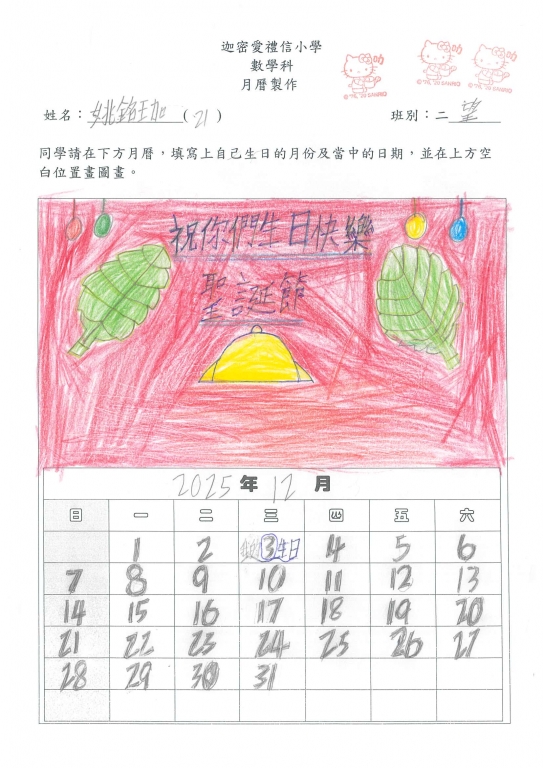 迦密愛禮信小學
數學科
月曆製作
姓名：姚銘珈(21)
班別：二望
同學請在下方月曆，填寫上自己生日的月份及當中的日期，並在上方空
白位置畫圖畫。
祝你們生日快樂
聖誕節
2025年12月
日 一 二 三 四 五 六
1 2 3生日 4 5 6
7 8 9 10 11 12 13
14 15 16 17 18 19 20
21 22 23 24 25 26 27
28 29 30 31